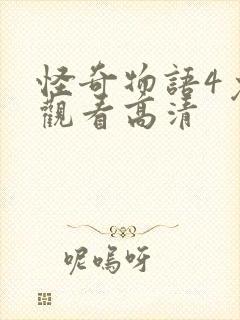 怪奇物語4
觀看高清
呢嗚呀